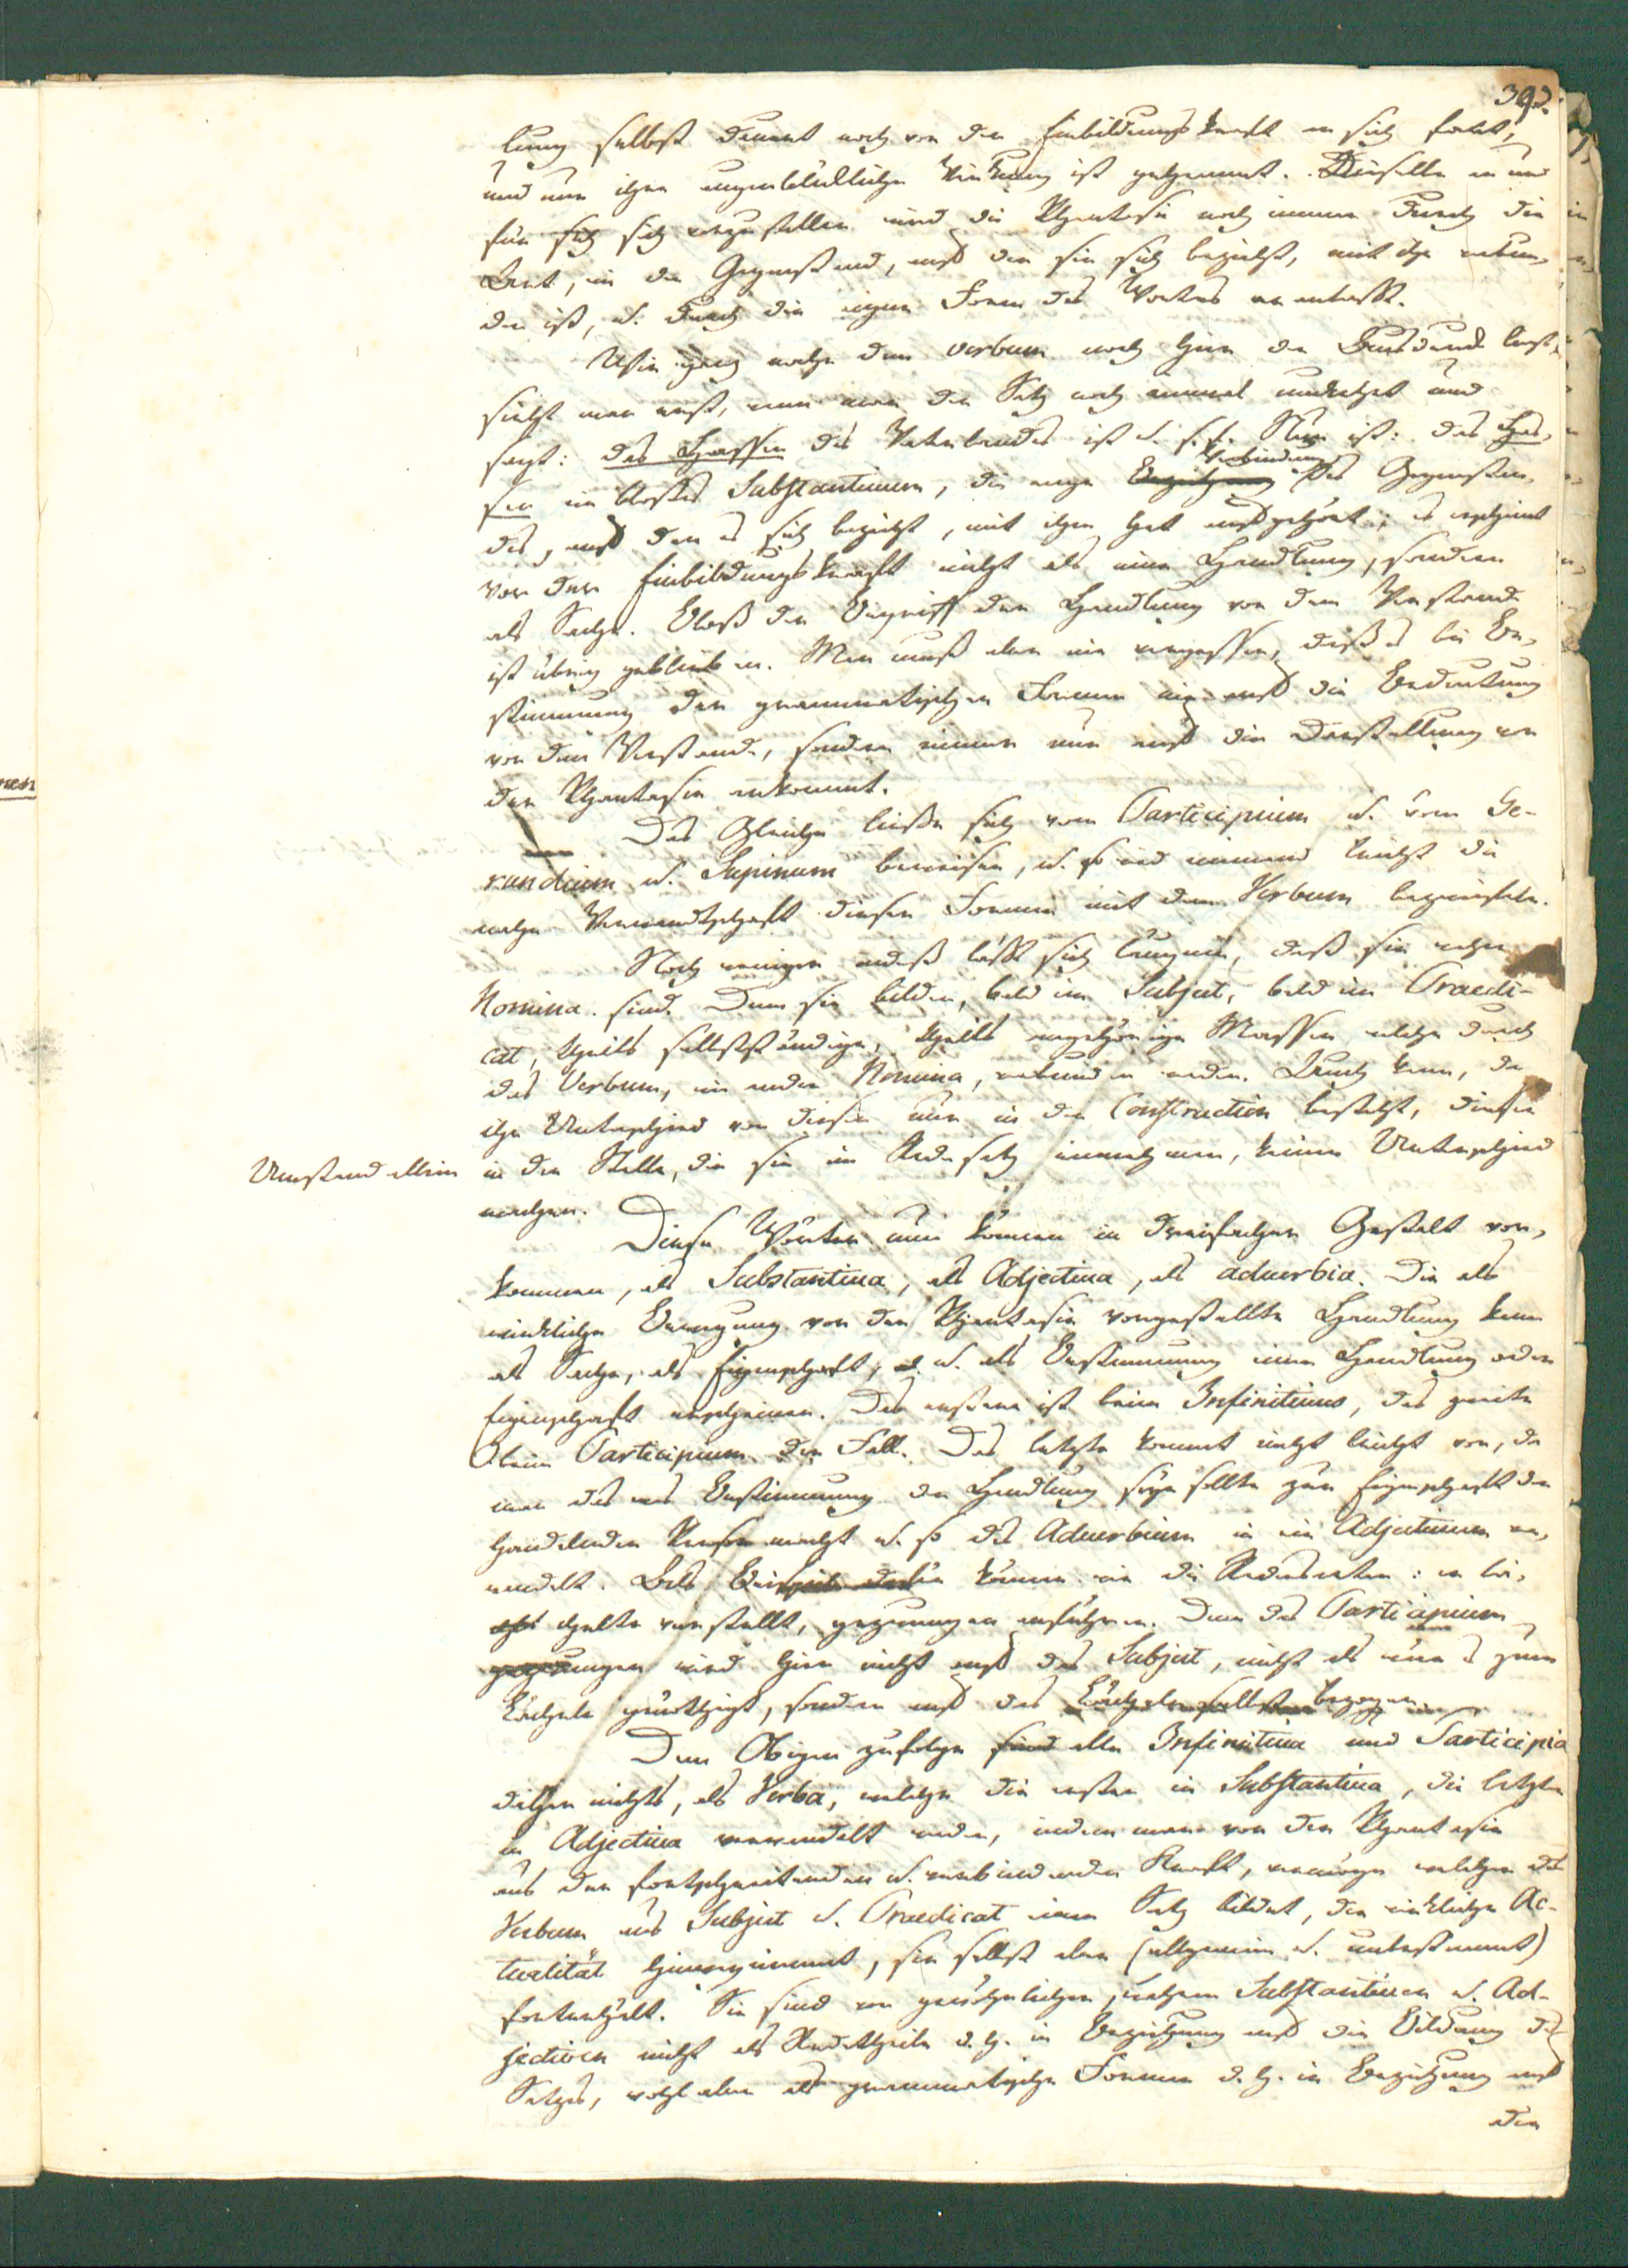 39.
lung selbst trennt noch von der Einbildungskraft an sich
und nur ihrer augenblicklichen Wirkung ist getrennt. Dieselbe an und
für sich vorzustellen wird die Phantasie noch immer durch die
in der Gegenstand, auf den sie sich bezieht, mit ihr verbun-
den ist, u. durch die eigne Form des Wortes veranlasst.
Wie nahe dem verbum noch hier der Ausdruck liegt,
sieht man erst, wenn man den Satz noch einmal umkehrt und
sagt: das Hassen des Vaterlandes ist u. s. f. Nun ist: das Has-
sen ein blosses Substantivum, die enge Verbindung des Gegenstan-
des, auf den es sich bezieht, mit ihm hat aufgehört; es erscheint
vor der Einbildungskraft nicht als eine Handlung, sondern
als Sache. Bloss der Begriff der Handlung vor dem Verstande
ist übrig geblieben. Man muss aber nie vergessen, dass es bei Be-
stimmung der grammatischen Formen nie auf die Bedeutung
vor dem Verstande, sondern immer nur auf die Darstellung vor
der Phantasie ankommt.
Das Gleiche liesse sich vom Participium u. vom Ge-
rundium u. Supinum beweisen, u. so wird niemand leicht die
nahe Verwandtschaft dieser Formen mit dem Verbum bezweifeln.
Noch weniger indess lässt sich läugnen, dass sie wahre
Nomina sind. Denn sie bilden, bald im Subject, bald im Praedi-
cat, theils selbstständige, theils angehörige Massen welche durch
das Verbum, wie andre Nomina, verbunden werden. Auch kann, da
ihr Unterschied von diesen nur in der Construction besteht, dieser
Umstand allein in der Stelle, die sie im Redesatz einnehmen, keinen Unterschied
machen.
Diese Wörter nun können in dreifacher Gestalt vor-
kommen, als Substantiva, als Adjectiva, als adverbia. Die als
wirkliche Bewegung von der Phantasie vorgestellte Handlung kann
als Sache, als Eigenschaft, u. als Bestimmung einer Handlung oder
Eigenschaft erscheinen. Das erstere ist beim Infinitivus, das zweite
beim Participium der Fall. Das letzte kommt nicht leicht vor, da
man das was Bestimmung der Handlung seyn sollte zur Eigenschaft der
handelnden Person macht u. so das Adverbium in ein Adjectivum ver-
wandelt. Als Beispiele können wir die Redensarten: er lä-
chelte verstellt, gezwungen anführen. Denn das Participium
gezwungen wird hier nicht auf das Subject, nicht als wäre es zum
Lächeln genöthigt, sondern auf das Lächeln selbst bezogen.
Dem Obigen zufolge sind alle Infinitiva und Participia
daher nichts, als Verba, welche die ersten in Substantiva, die letzten
in Adjectiva verwandelt werden, indem man von der Phantasie
aus der fortschreitenden u. verbindenden Kraft, vermöge welcher das
Verbum aus Subject u. Praedicat einen Satz bildet, die wirkliche Ac-
tualität hinwegnimmt, sie selbst aber (allgemein u. unbestimmt)
forterhält. Sie sind von gewöhnlichen, wahren Substantiven u. Ad-
jectiven nicht als Redetheile d. h. in Beziehung auf die Bildung des
Satzes, wohl aber als grammatische Formen d. h. in Beziehung auf
den